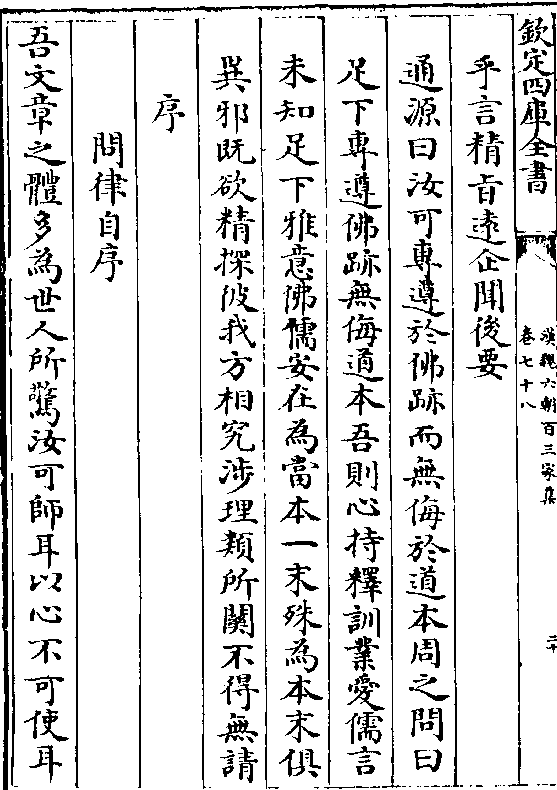 欽定四庫全書
漢魏六朝百三家集
卷七十八
二十
乎言精旨遠企聞後要
通源曰汝可專遵於佛跡而無侮於道本周之問曰
足下專遵佛跡無侮道本吾則心持釋訓業愛儒言
未知足下雅意佛儒安在為當本一末殊為本末俱
異邪既欲精探彼我方相究涉理類所關不得無請
序
問律自序
吾文章之體多為世人所驚汝可師耳以心不可使耳